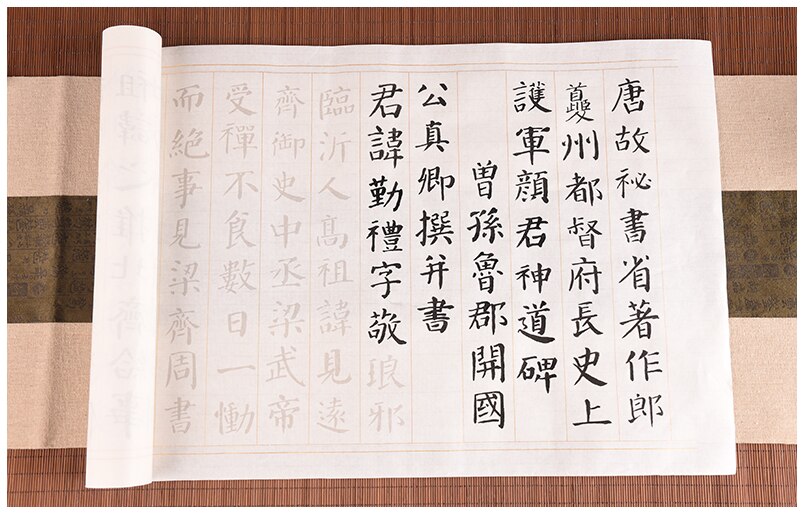 唐故祕書省著作郎
夔州都督府長史上
護軍顏君神道碑
曾孫魯郡開國
公真卿撰并書
君諱勤禮字敬琅邪
臨沂人高祖諱見遠
齊御史中丞梁武帝
受禪不食數日一慟
而絕事見梁齊周書